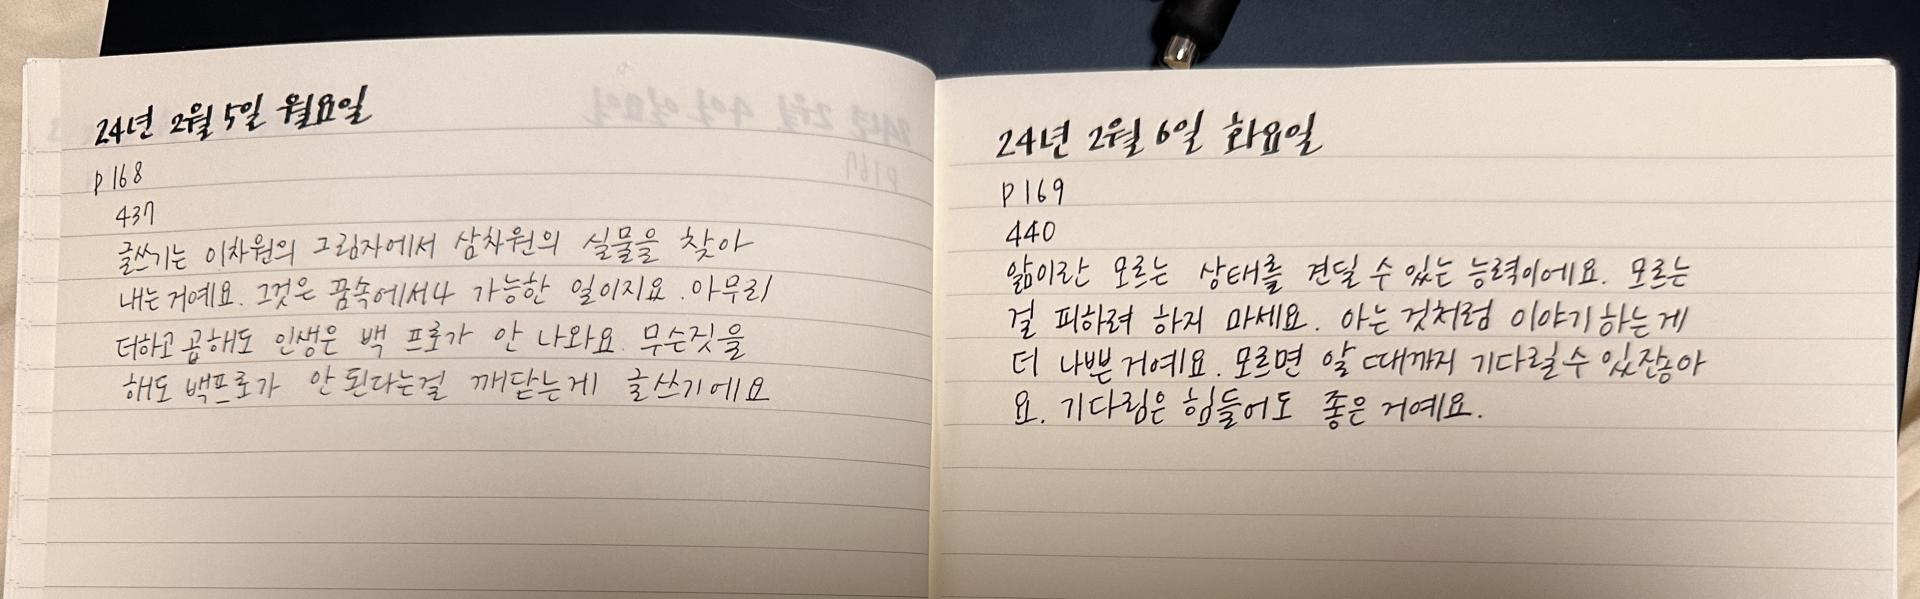 24년 2월 5일 월요일
p168
437
글쓰기는 이차원의 그림자에서 삼차원의 실물을 찾아
내는거예요. 그것은 꿈속에서나 가능한 일이지요. 아무리
더하고 곱해도 인생은 백 프로가 안 나와요. 무슨짓을
해도 백프로가 안 된다는걸 깨닫는게 글쓰기에요
24년 2월 6일 화요일
p169
440
앎이란 모르는 상태를 견딜 수 있는 능력이에요. 모르는
걸 피하려 하지 마세요. 아는 것처럼 이야기 하는게
더 나쁜 거예요. 모르면 알 때까지 기다릴 수 있잖아
요. 기다림은 힘들어도 좋은 거예요.